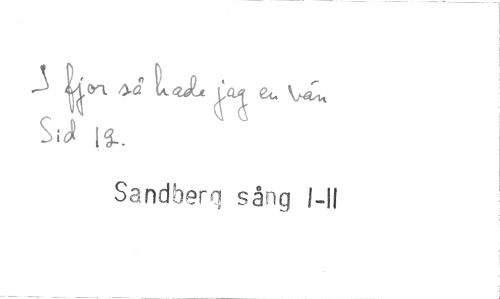 I fjor så hade jag en vän
Sid 19.
Sandberg sång I-II